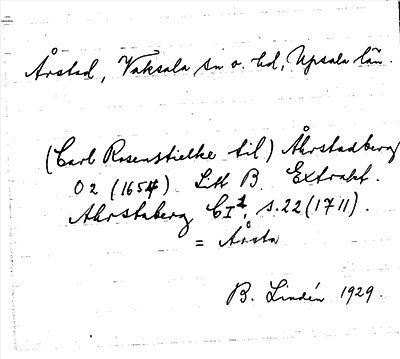 Årstad, Vaksala sn o. hd, Upsala län.
(Carl Rosenstielke til) Åhrstadberg
O 2 (1654) Litt B. Extrakt.
Ahrstaberg CI 1, s. 22 (1711).
= Årsta
B. Lindén 1929.